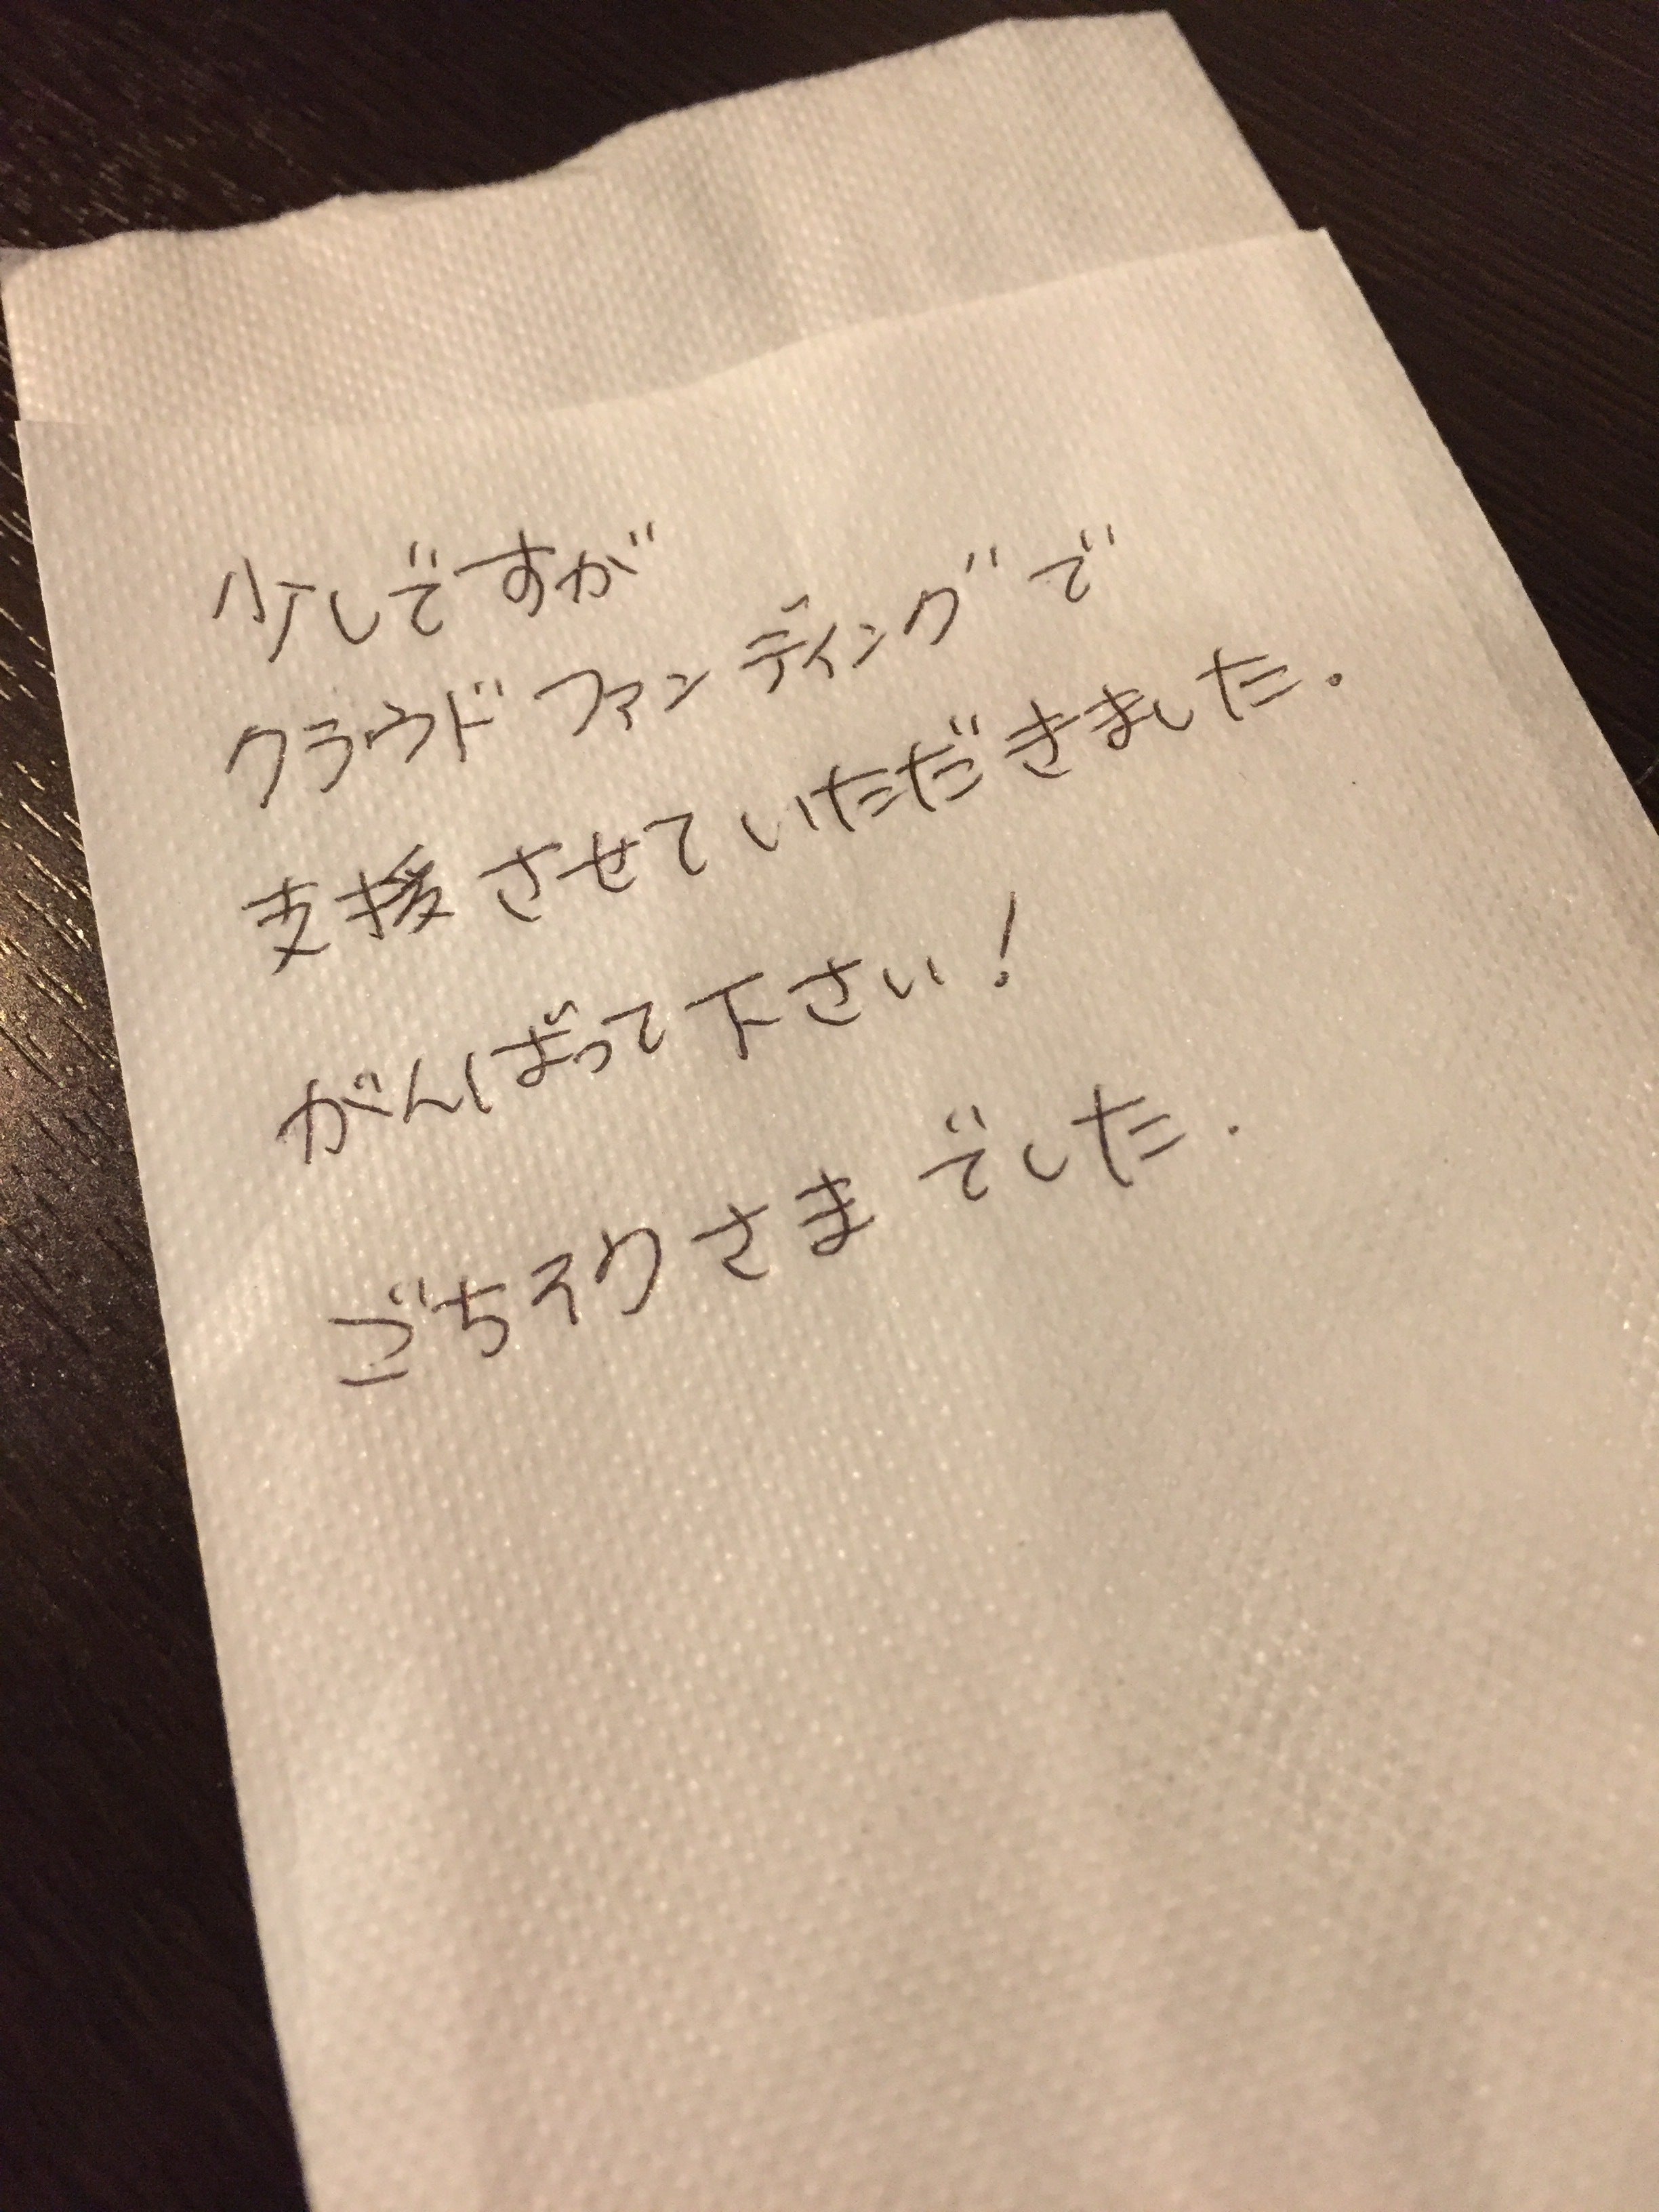 少しですが
クラウドファンディングで
支援させていただきました.
がんばって下さい!
ごちそうさまでした.